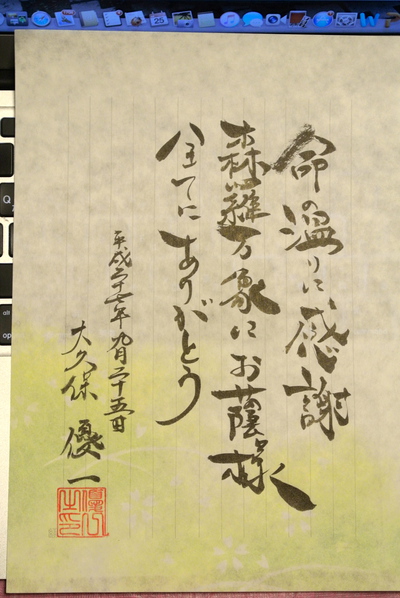 命の温りに感謝
森羅万象にお蔭様
全てにありがとう
平成二十七年九月二十五日
大久保 優一